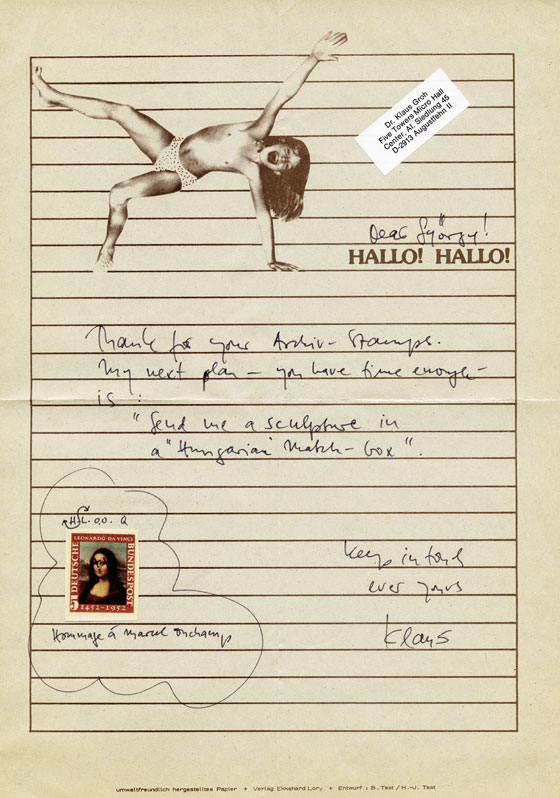 Dr. Klaus Groh
Five Towers Micro Hall
Center, Al. Siedlung 45
D-2913 Augustfehn II
Dear György!
HALLO! HALLO!
Thank for your Archiv-Stamps.
My next plan – you have time enough –
is :
"Send me a sculpture in
a "Hungarian Match-box".
LEONARDO DA VINCI
DEUTSCHE
BUNDESPOST
5
1452-1952
Hommage à Marcel Duchamp
keep in touch
ever yours
Klaus
umweltfreundlich hergestelltes Papier + Verlag Ekkehard Lory + Entwurf : B. Tast / H.-J. Tast